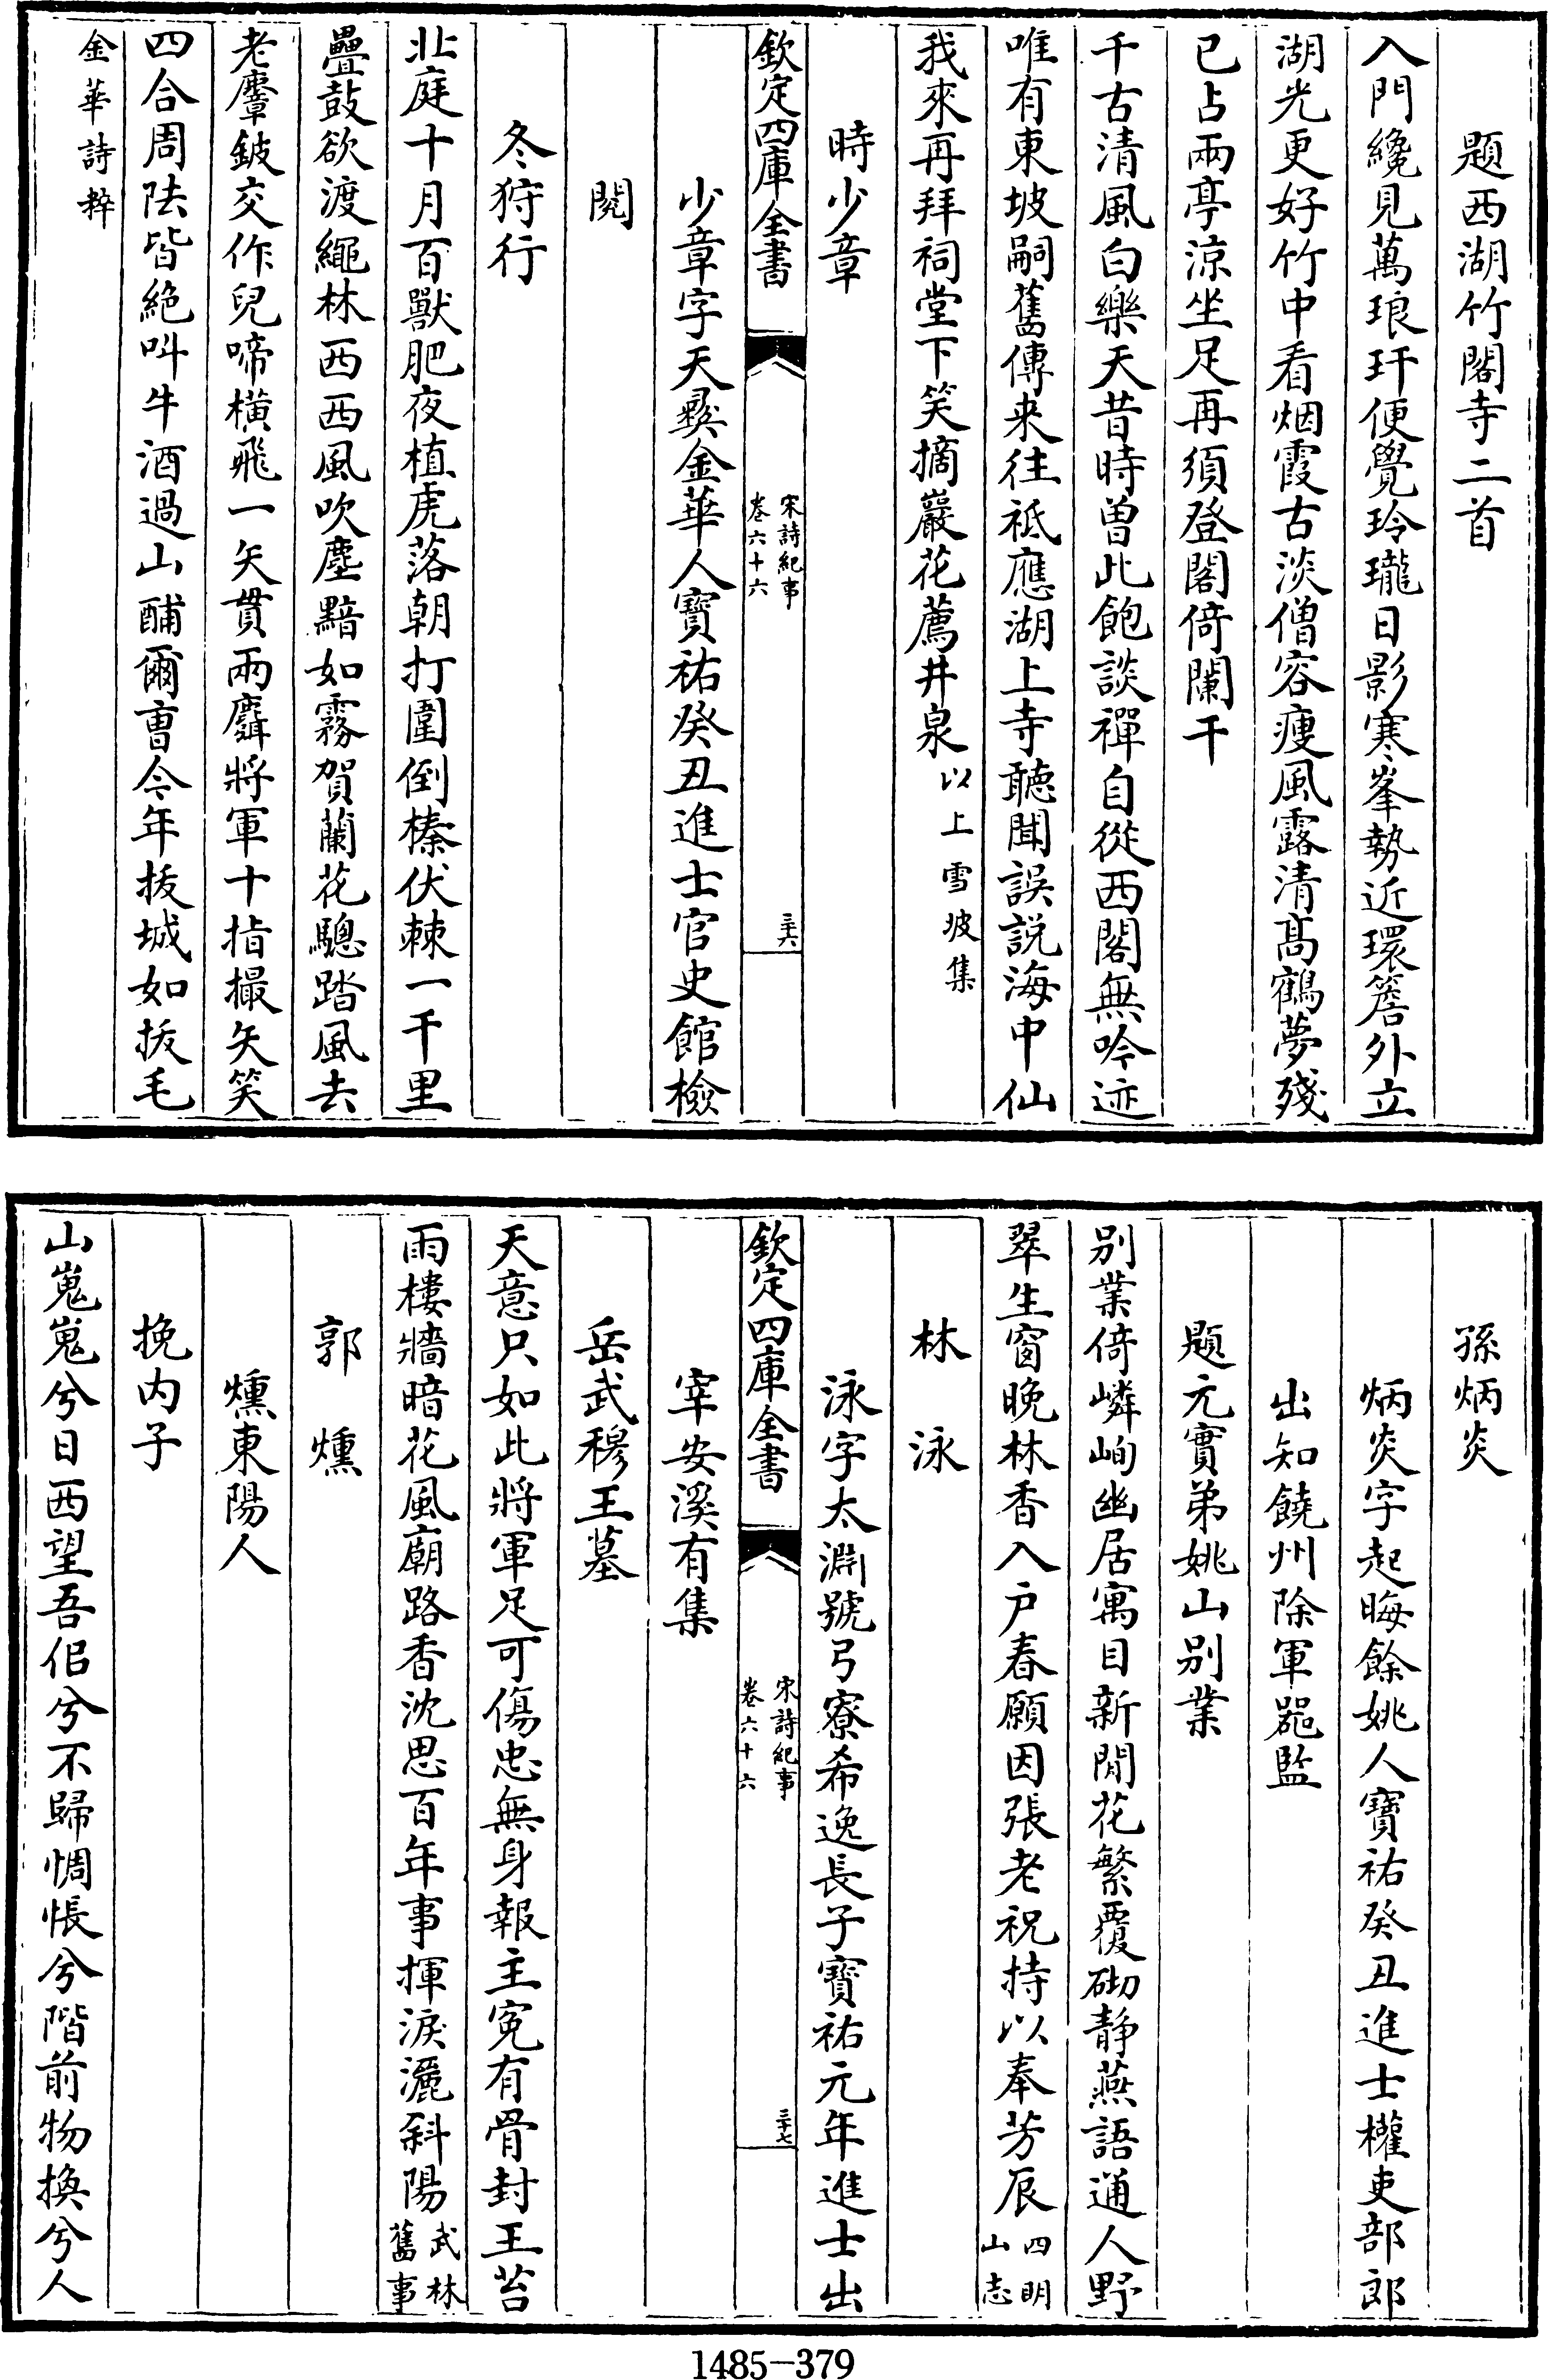 題西湖竹閣寺二首
入門纔見萬琅玕便覺玲瓏日影寒峯勢近環簷外立
湖光更好竹中看烟霞古淡僧容瘦風露清髙鶴夢殘
已占兩亭涼坐足再須登閣倚闌干
千古清風白樂天昔時曽此飽談禪自從西閣無吟迹
唯有東坡嗣舊傳来往祗應湖上寺聽聞誤説海中仙
我來再拜祠堂下笑摘巖花薦井泉以上雪坡集
時少章
欽定四庫全書
宋詩紀事
卷六十六
三十六
少章字天彛金華人寶祐癸丑進士官史館檢
閱
冬狩行
北庭十月百獸肥夜植虎落朝打圍倒榛伏棘一千里
疊鼓欲渡繩林西西風吹塵黯如霧賀蘭花驄踏風去
老麞鈹交作兒啼橫飛一矢貫兩麝將軍十指撮矢笑
四合周阹皆絶叫牛酒過山酺爾曹今年拔城如拔毛
金華詩粹
孫炳炎
炳炎字起晦餘姚人寶祐癸丑進士權吏部郎
出知饒州除軍器監
題元實弟姚山别業
别業倚嶙峋幽居寓目新閒花繁覆砌靜燕語通人野
翠生窗晚林香入户春願因張老祝持以奉芳辰四明山志
林泳
泳字太淵號弓寮希逸長子寶祐元年進士出
欽定四庫全書
宋詩紀事
卷六十六
三十七
宰安溪有集
岳武穆王墓
天意只如此將軍足可傷忠無身報主寃有骨封王苔
雨樓牆暗花風廟路香沈思百年事揮淚灑斜陽武林舊事
郭燻
燻東陽人
挽内子
山嵬嵬兮日西望吾侣兮不歸惆悵兮階前物換兮人
1485-379